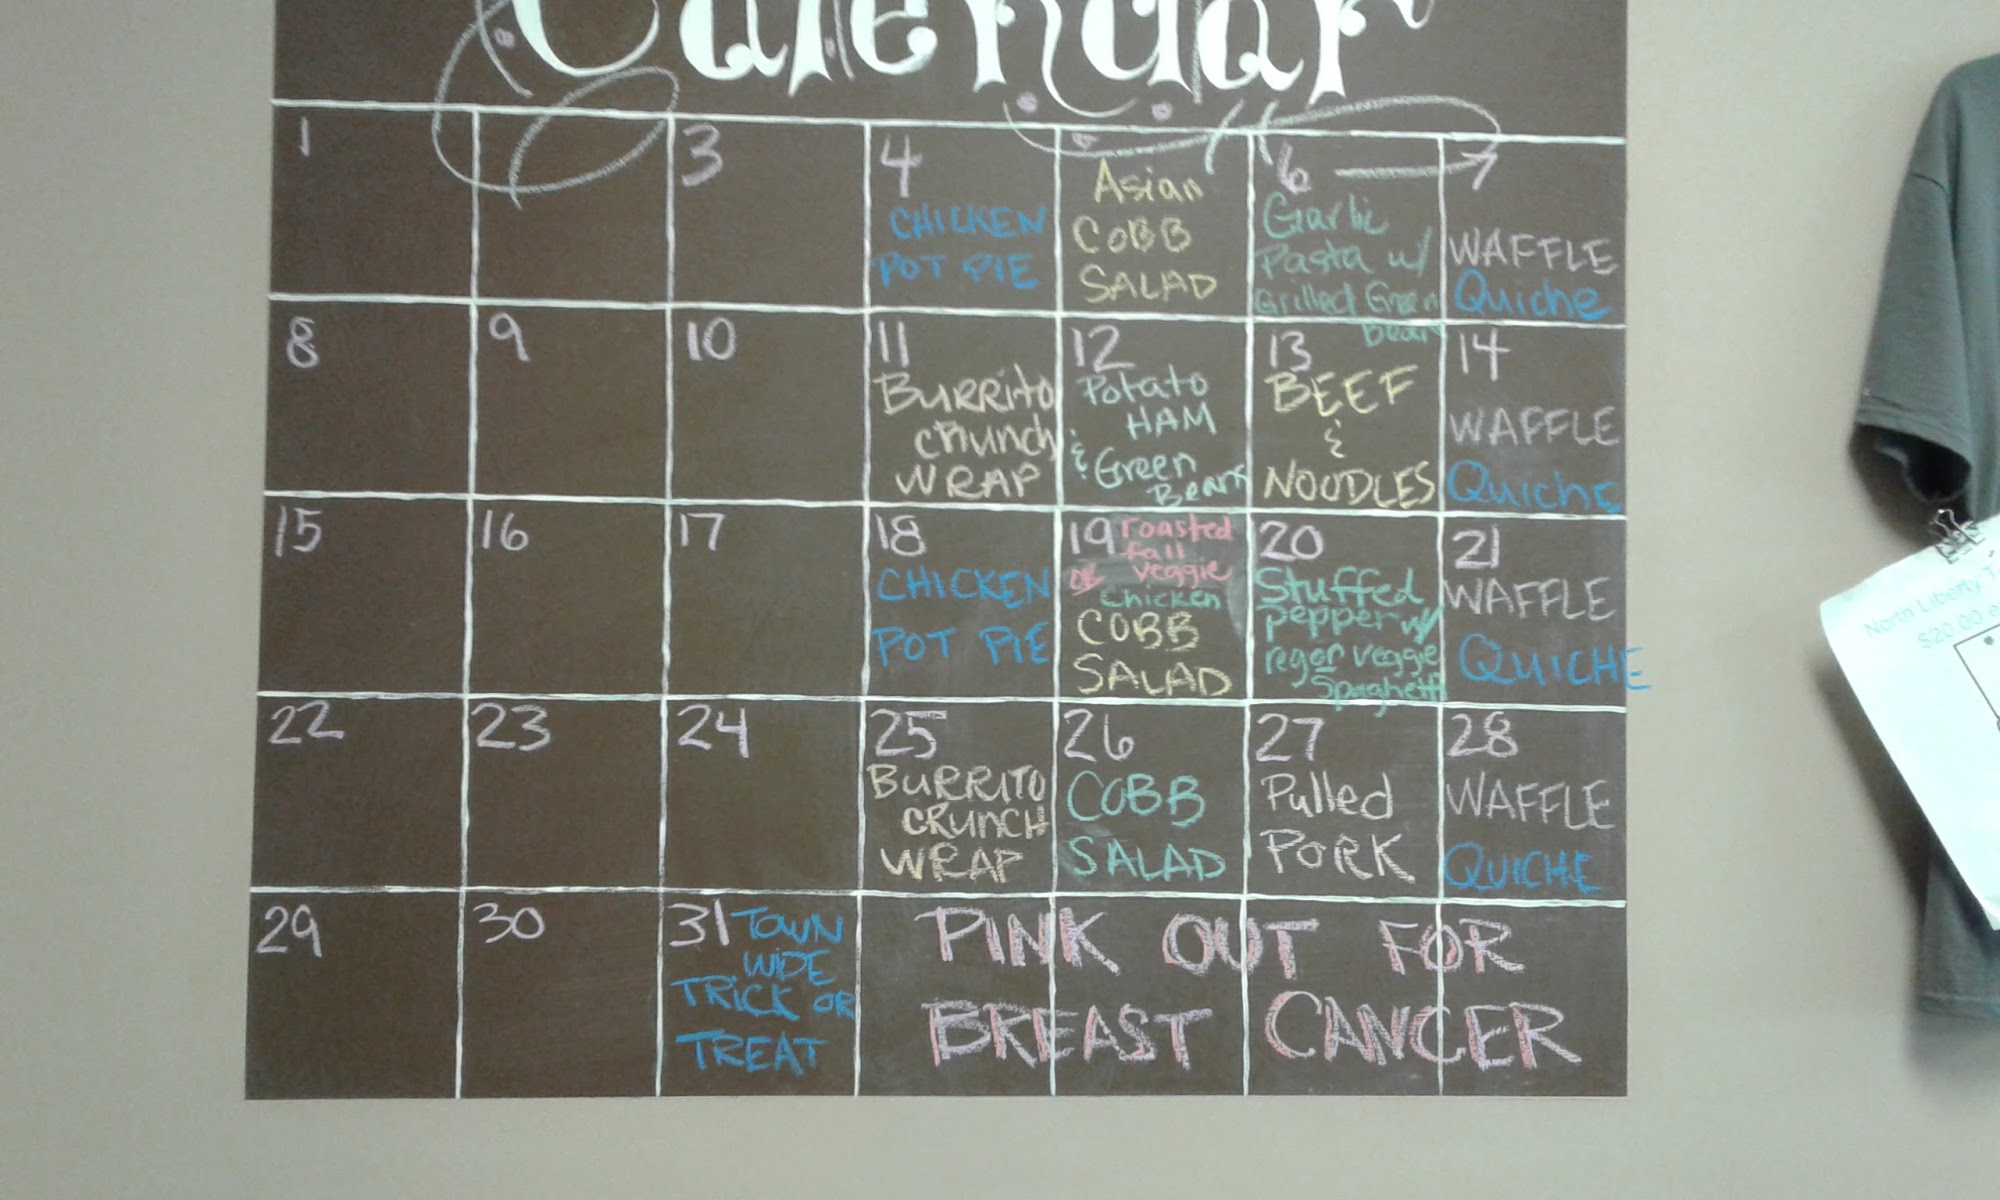 Calendar
1
3
4
CHICKEN
POT PIE
Asian
COBB
SALAD
6
Garlic
Pasta w/
Grilled Green
Beans
7
WAFFLE
Quiche
8
9
10
11
BURRITO
CRUNCH
WRAP
12
Potato
HAM
& Green
Beans
13
BEEF
&
NOODLES
14
WAFFLE
Quiche
15
16
17
18
CHICKEN
POT PIE
19 roasted
fall
OR veggie
Chicken
COBB
SALAD
20
Stuffed
pepper w/
reg or veggie
Spaghetti
21
WAFFLE
QUICHE
22
23
24
25
BURRITO
CRUNCH
WRAP
26
COBB
SALAD
27
Pulled
PORK
28
WAFFLE
QUICHE
29
30
31 TOWN
WIDE
TRICK OR
TREAT
PINK OUT FOR
BREAST CANCER
North Liberty T
$20.00 e